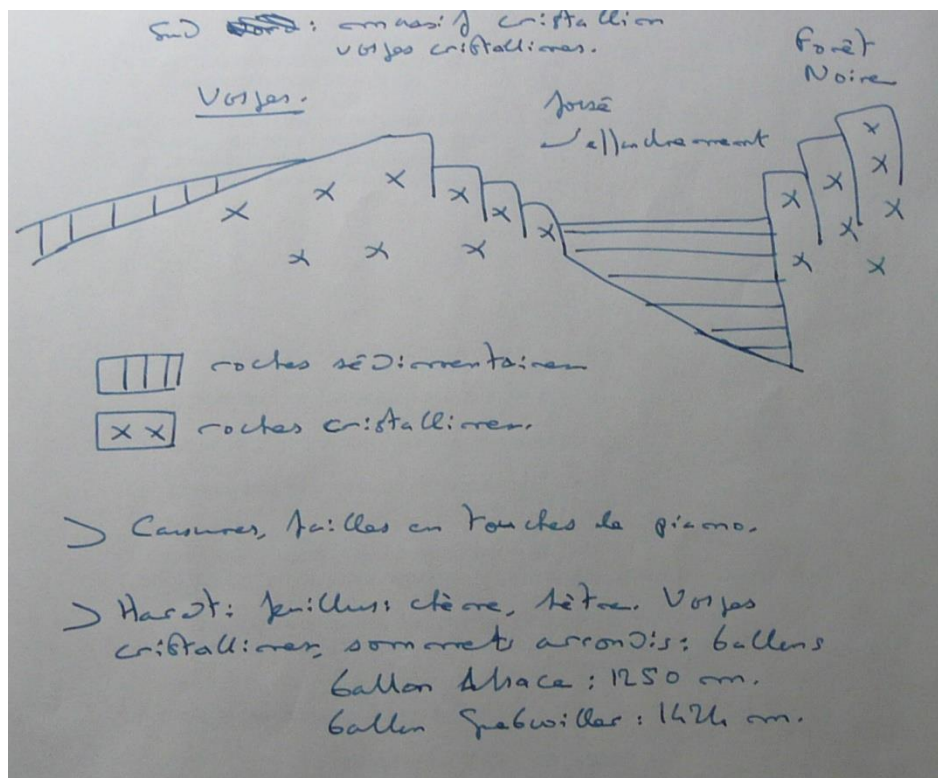 Sud : massif cristallin
Vosges cristallines.
Forêt
Noire
Vosges.
fossé
d'effondrement
roches sédimentaires
roches cristallines.
> Cassures, failles en touches de piano.
> Hardt: feuillus: chêne, hêtre. Vosges
cristallines, sommets arrondis: ballons
ballon Alsace : 1250 m.
ballon Guebwiller : 1424 m.